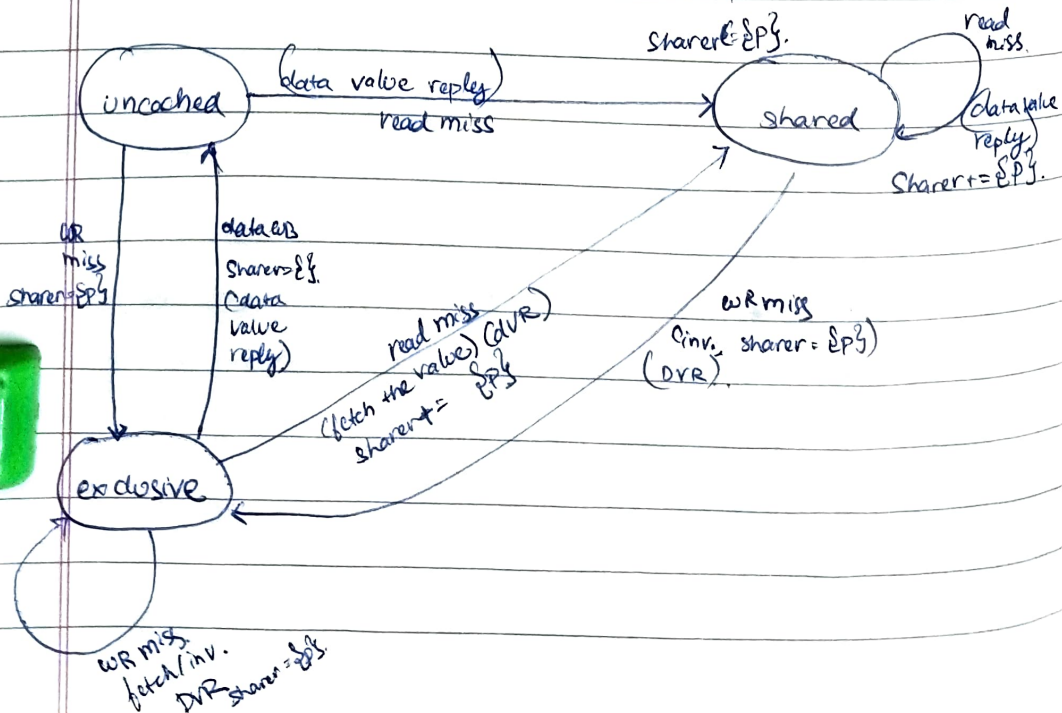 Sharer={P}.
read
miss.
(data value reply)
uncached
shared
read miss
(data value
reply)
Sharer+={P}.
WR
miss
sharer={P}
data WB
Sharer={}.
(data
value
reply)
read miss
(fetch the value) (DVR)
sharer+= {P}
WR miss
(inv. sharer={P})
(DVR).
exclusive
WR miss.
fetch/inv.
DVR sharer={P}.